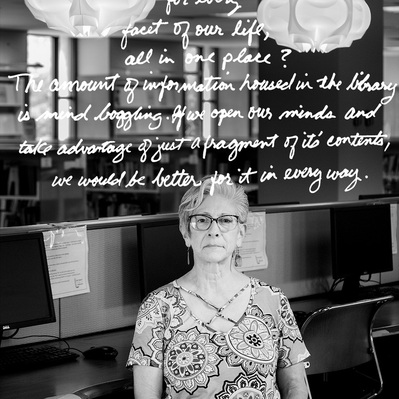 for every
facet of our life,
all in one place?
The amount of information housed in the library
is mind boggling. If we open our minds and
take advantage of just a fragment of it's contents,
we would be better for it in every way.